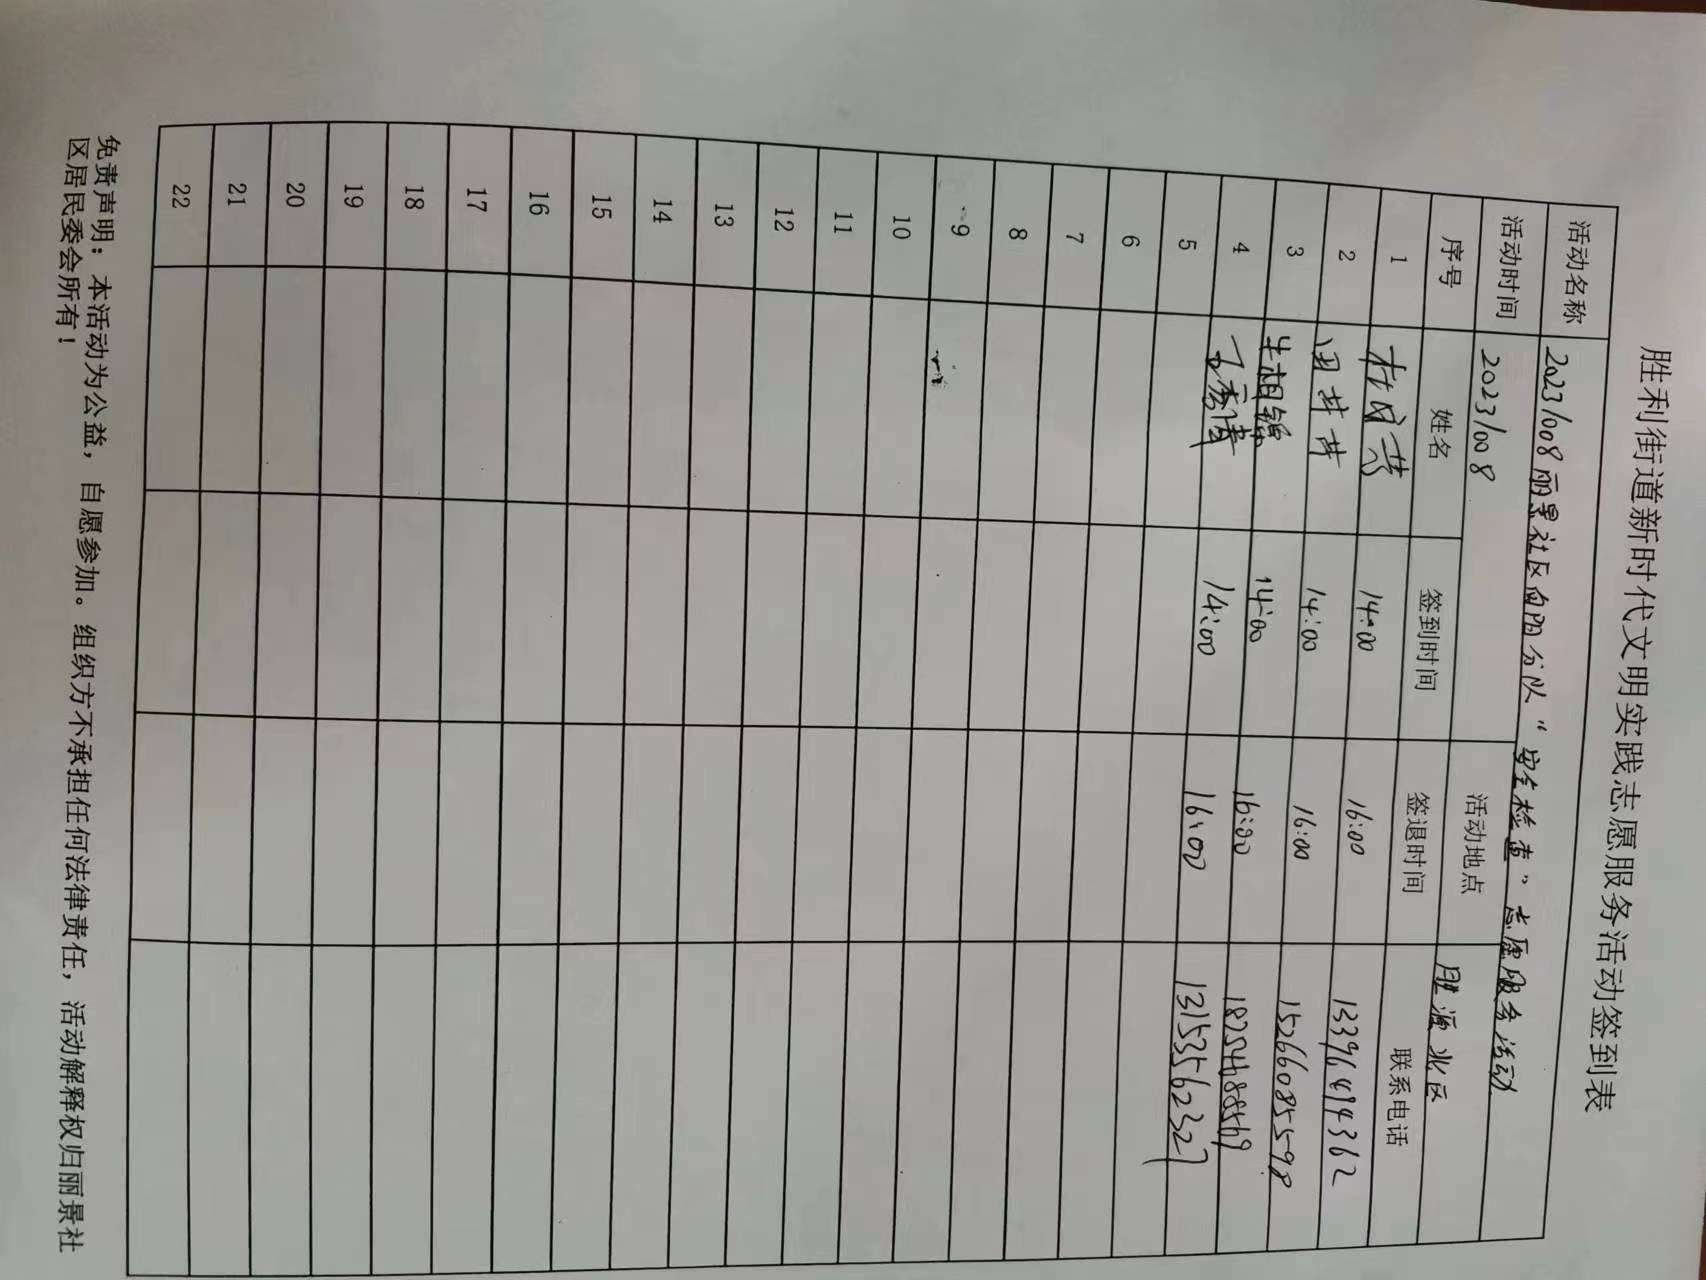 胜利街道新时代文明实践志愿服务活动签到表
活动名称 20231008丽景社区向阳分队“安全检查”志愿服务活动
活动时间 20231008 活动地点 胜源北区
序号 姓名 签到时间 签退时间 联系电话
1 14:00 16:00 13396494362
2 田苗苗 14:00 16:00 15266085598
3 14:00 16:00 18754688569
4 王秀清 14:00 16:00 13153562327
5
6
7
8
9
10
11
12
13
14
15
16
17
18
19
20
21
22
免责声明：本活动为公益，自愿参加。组织方不承担任何法律责任，活动解释权归丽景社
区居民委会所有！